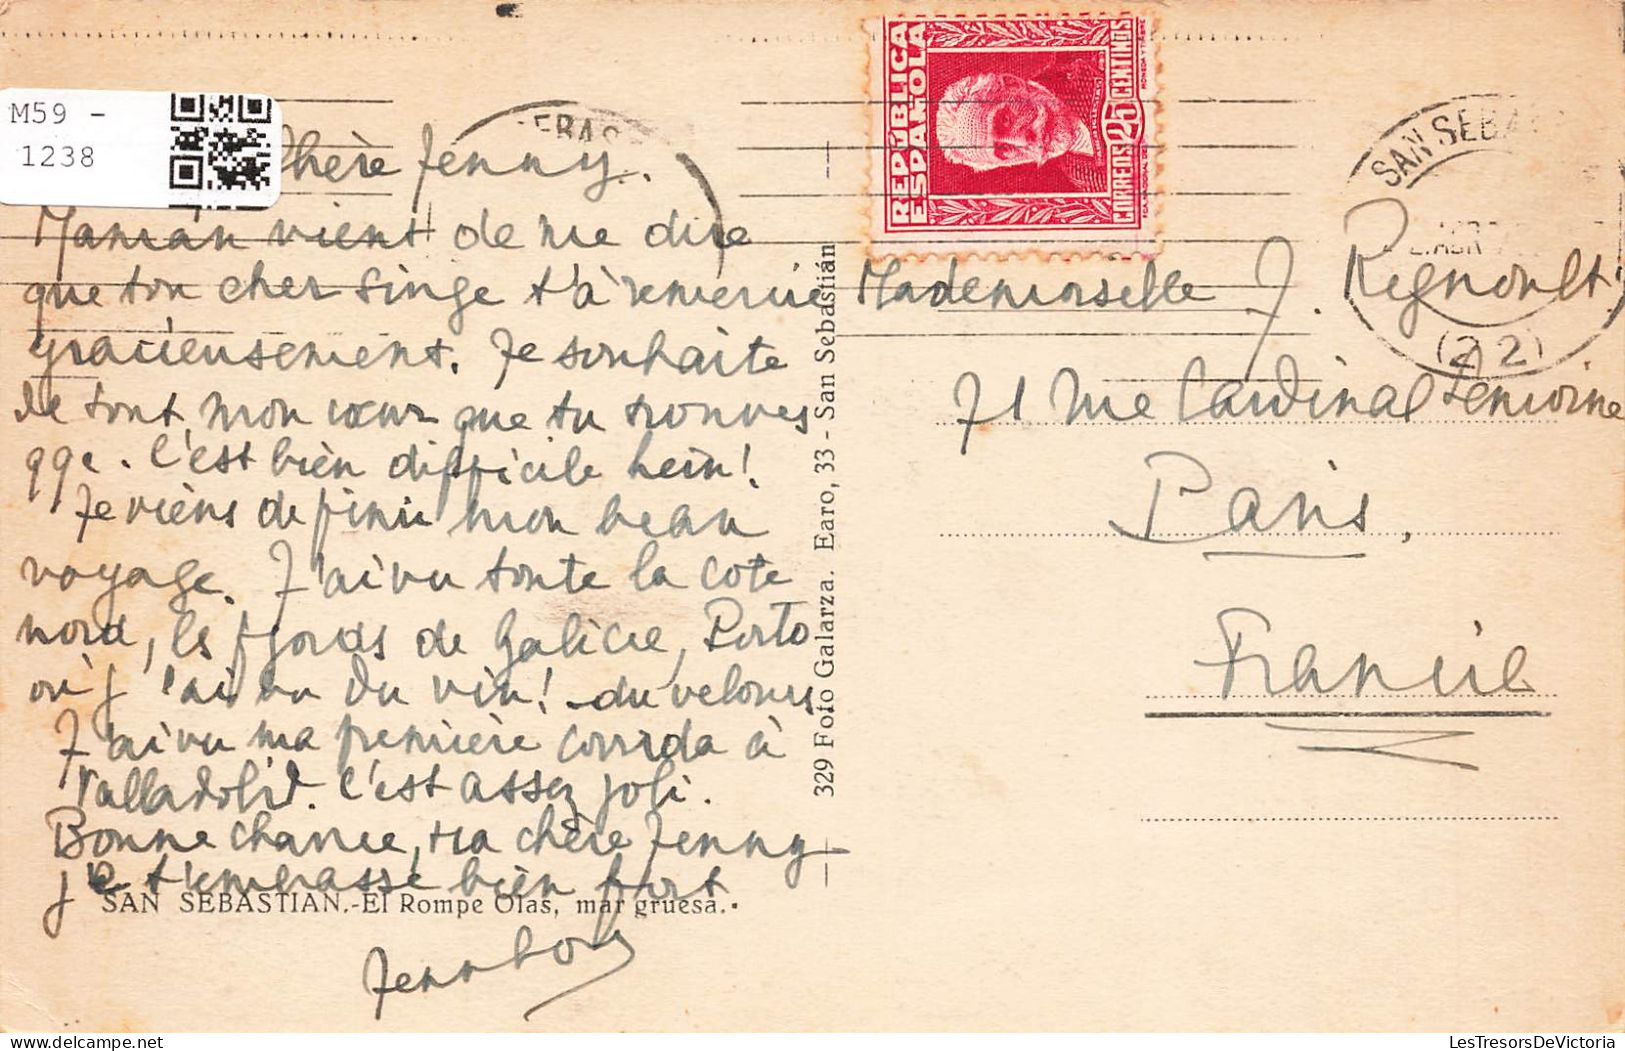 M59 -
1238
Chère Jenny.
Maman vient de me dire
que ton cher singe t'a remercié
gracieusement. Je souhaite
de tout mon cœur que tu trouves
qqc. C'est bièn difficile hein!
Je vièns de finir mon beau
voyage. J'ai vu toute la cote
nord, les fjords de Galicie, Porto
où j'ai bu du vin! du velours
J'ai vu ma première corrida à
Valladolid. C'est assez joli.
Bonne chance, ma chère Jenny
je t'embrasse bièn fort
SAN SEBASTIAN.-El Rompe Olas, mar gruesa.
329 Foto Galarza. Earo, 33 - San Sebastián
REPÚBLICA
ESPAÑOLA
CORREOS 25 CENTIMOS
SAN SEBA
(22)
Mademoiselle J. Regnoult
71 rue Cardinal Lemoine
Paris,
France
LesTresorsDeVictoria